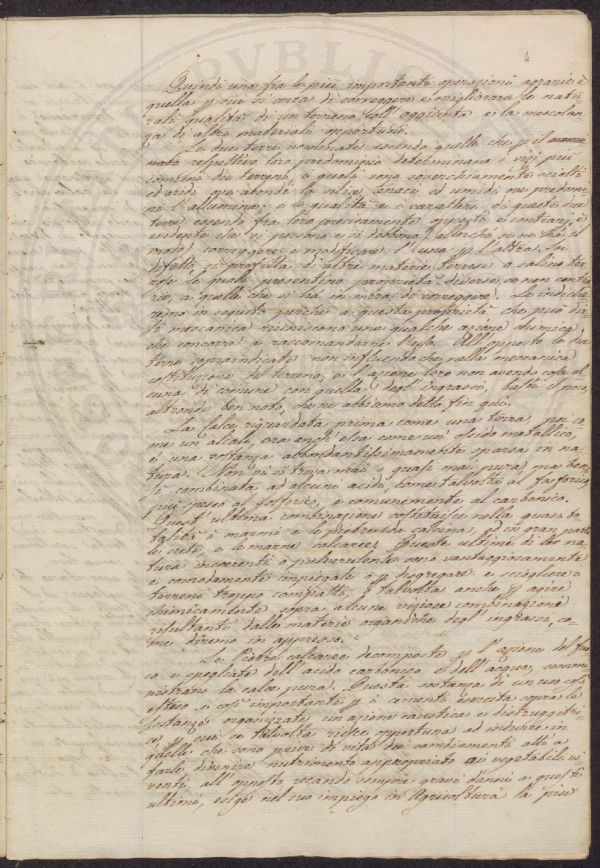 4
Quindi una fra le più importanti operazioni agrarie è
quella p cui si cerca di correggere e migliorare le natu-
rali qualità di un terreno coll' aggiunta e la mescolan-
za di altri materiali opportuni.
Le due terre nominate essendo quelle che p il
loro predominio determinano i vizj più
comuni dei terreni, i quali sono soverchiamente sciolti
ed aridi ove abondi la silice, tenaci ed umidi ove predomi-
ni l'allumine; e le qualità e i caratteri di queste due
terre essendo fra loro precisamente opposti e contrarj, è
evidente che si possono e si debbono allorchè se ne ha il
modo correggere e modificare l'una p l'altra. In
difetto, si profitta d'altre materie terrose o saline ter-
rose le quali presentino proprietà diverse, se non contra-
rie, a quelle che si ha in mira di correggere. Le indiche-
remo in seguito perchè a questa proprietà che può dir-
si meccanica riuniscono una qualche azione chimica
che concorre a raccomandarne l'uso. All'opposto le due
terre sopraindicate non influendo che nella meccanica
costituzione del terreno, e l'azione loro non avendo cosa al-
cuna di comune con quella degl'ingrassi, basti il poco,
altronde ben noto, che ne abbiamo detto fin quì.
La calce, riguardata prima come una terra, poi co-
me un alcale, ora anch'essa come un ossido metallico,
è una sostanza abbondantissimamente sparsa in na-
tura. Non vi si trova mai o quasi mai pura, ma ben-
sì combinata ad alcuni acidi, come talvolta al
più spesso al solforico, e comunemente al carbonico.
Quest'ultima combinazione costituisce nella quasi to-
talità i marmi e le pietre da calcina, ed in gran parte
le crete, e le marne calcaree. Queste ultime di lor na-
tura incoerenti o pulverulente sono vantaggiosamente
e comodamente impiegate o p disgregare e sciogliere
terreni troppo compatti, o talvolta anche p agire
chimicamente sopra alcune viziose combinazioni
risultanti dalle materie organiche degl'ingrassi, co-
me diremo in appresso.
Le Pietre calcaree decomposte p l'azione del fuo-
co e spogliate dell'acido carbonico e dell'acqua, sommi-
nistrano la calce pura. Questa sostanza di un uso così
esteso e così importante p i cementi esercita sopra le
sostanze organizzate un'azione caustica e distruggitri-
ce, p cui se talvolta riesce opportuna ad indurre in
quelli che sono privi di vita dei cambiamenti atti a
farli divenire nutrimento appropriato ai vegetabili vi-
venti, all'opposto recando sempre gravi danni a questi
ultimi, esige nel suo impiego in Agricoltura la più